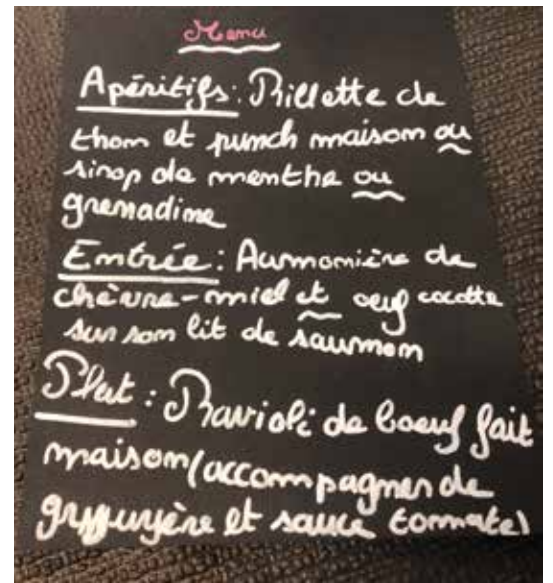 Menu
Apéritifs: Rillette de
thom et punch maison ou
sirop de menthe ou
grenadine
Entrée: Aumonière de
chèvre-miel et oeuf cocotte
sur son lit de saumon
Plat: Ravioli de boeuf fait
maison (accompagner de
gryuyère et sauce tomate)